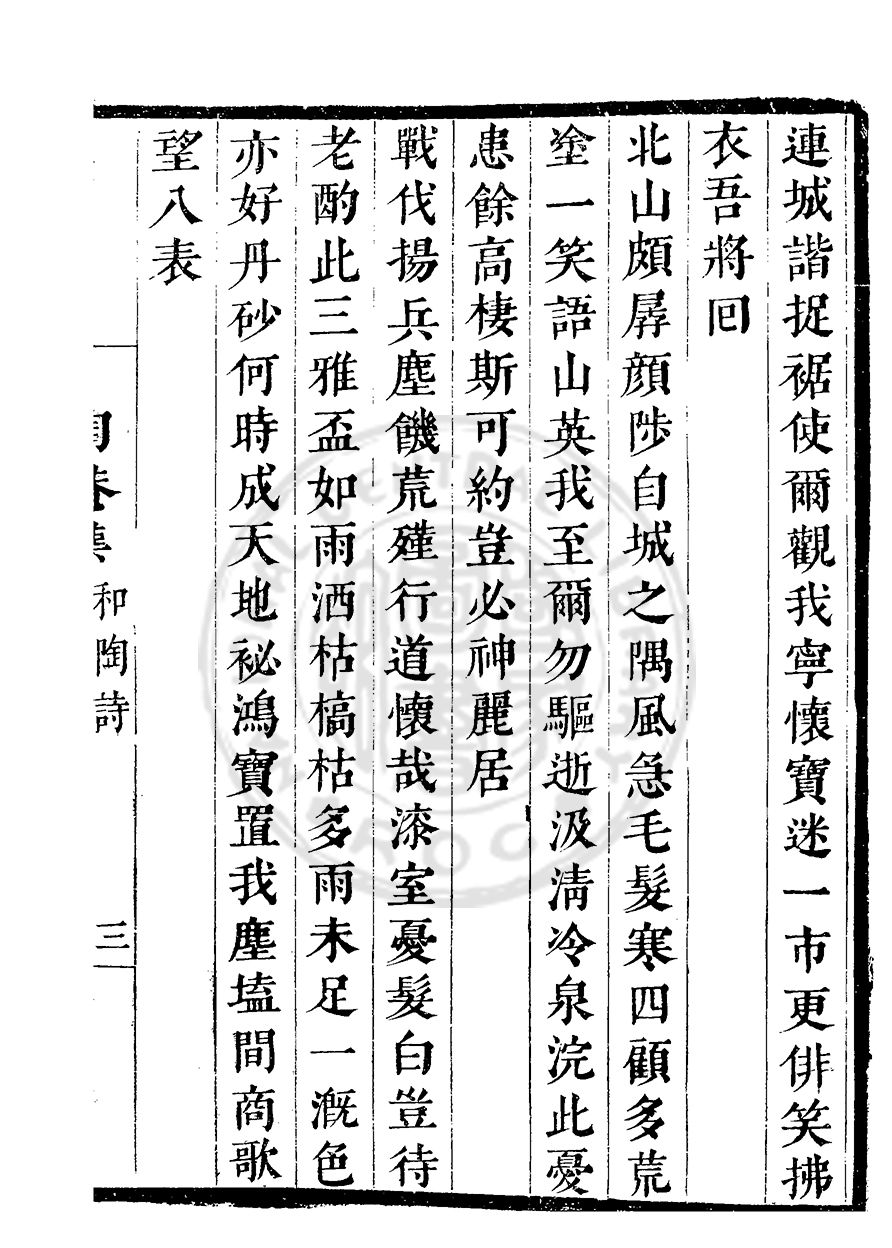 連城諧捉裾使爾觀我寧懷寶迷一市更俳笑拂
衣吾將囘
北山頗孱顔陟自城之隅風急毛髮寒四顧多荒
塗一笑語山英我至爾勿驅逝汲淸冷泉浣此憂
恚餘高棲斯可約豈必神麗居
戰伐揚兵塵饑荒殣行道懷哉漆室憂髮白豈待
老酌此三雅盃如雨洒枯槁枯多雨未足一漑色
亦好丹砂何時成天地祕鴻寶置我塵壒間商歌
望八表
陶菴集
和陶詩
三